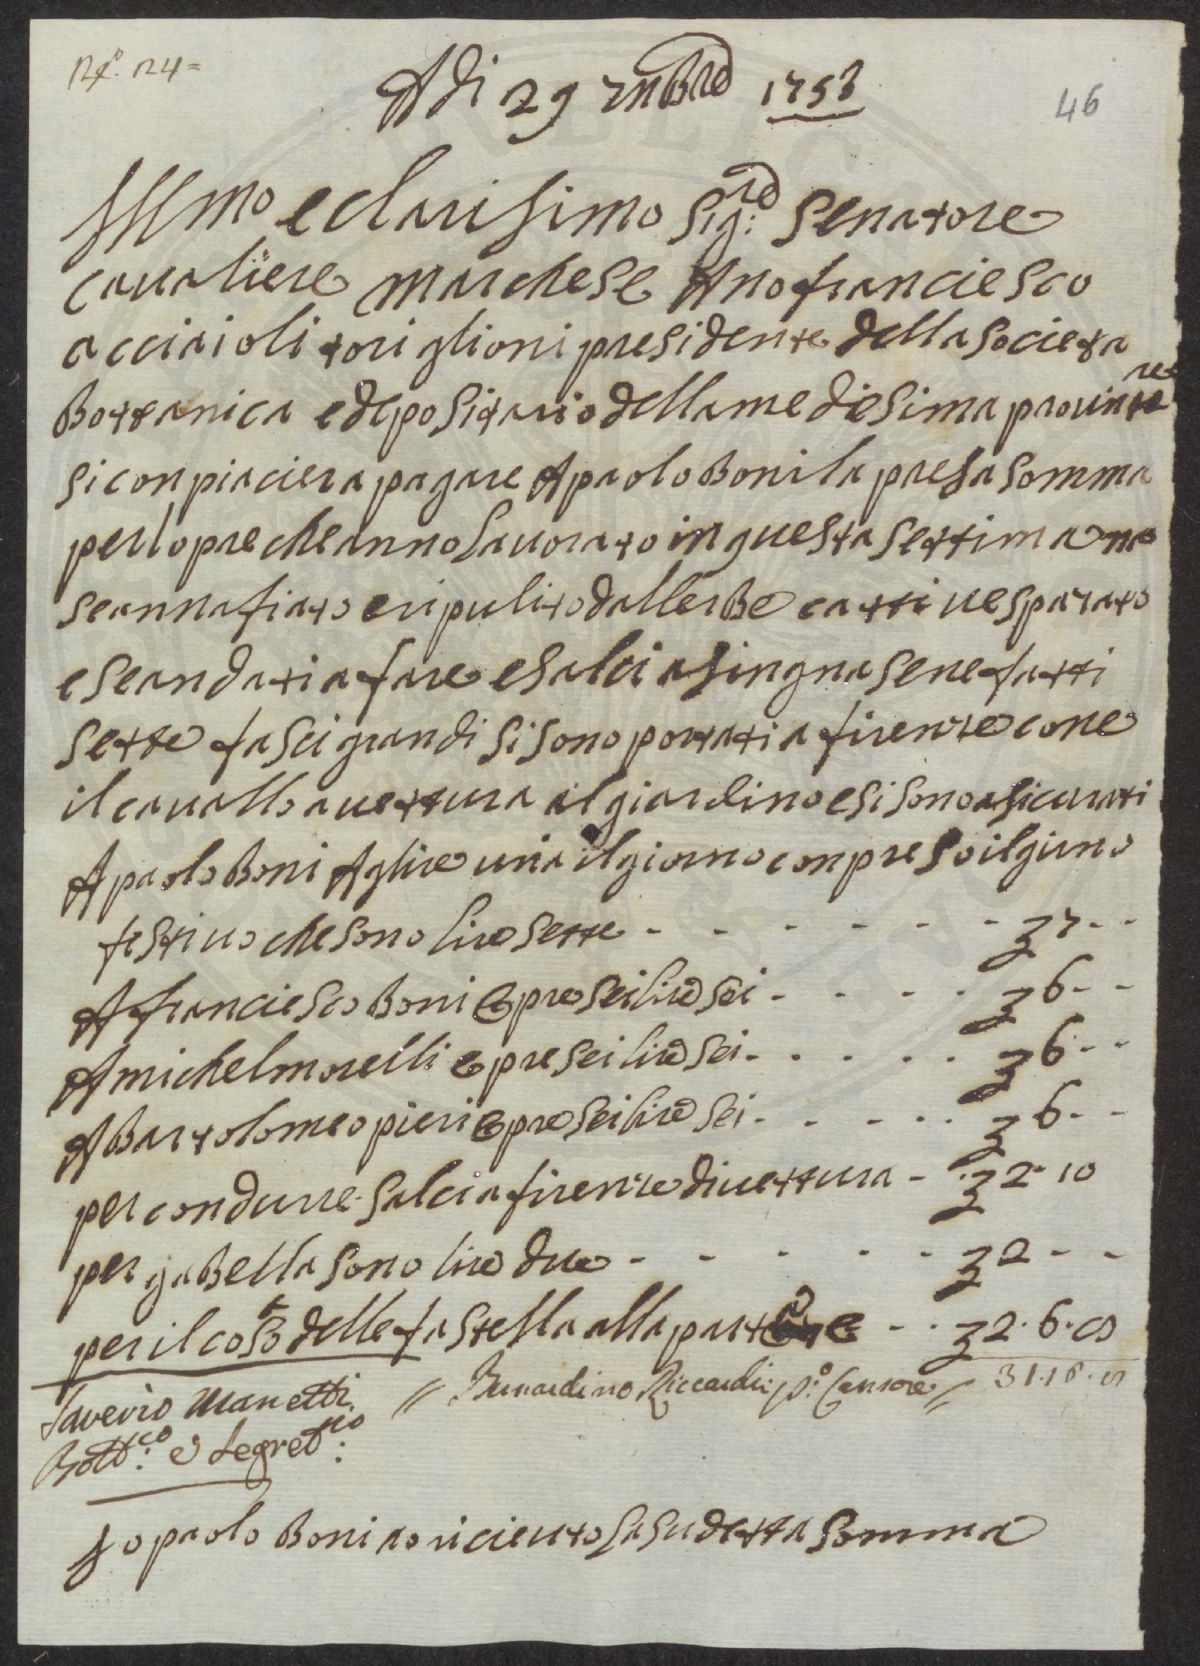 N.º 24=
Adi 29 7mbre 1753
46
Illmo e clarisimo Sig:re Senatore
cavaliere marchese Anofranciesco
acciaioli toriglioni presidente della Societa
Bottanica e depositario della mediesima
si conpiaciera pagare A paolo Boni la presa somma
per lopre che anno lavorato in questa settimana
se annafiato e ripulito dallerbe
e se andati a fare e salci a singna se ne fatti
sette fasci grandi si sono portati a firenze cone
il cavallo a vettura al giardino e si sono asicurati
A paolo Boni A glire una il giorno conpreso il giuno
festivo che sono lire sette - - - - - - 37 - -
A franciesco Boni e pre sei lire sei - - - - 36 - -
A michel morelli e pre sei lire sei - - - - - 36 - -
A Bartolomeo pieri e pre sei lire sei - - - - - 36 - -
per condurre salci a firenze di vettura - 32 10
per gabella sono lire due - - - - - 32 - -
per il costo delle fastella alla - - 32.6.8
Saverio Manetti // Bernardino Riccardi p.º Censore // 31.16.8
Bott:co e Segret:rio
Io paolo Boni ao riceuto la sudetta somma